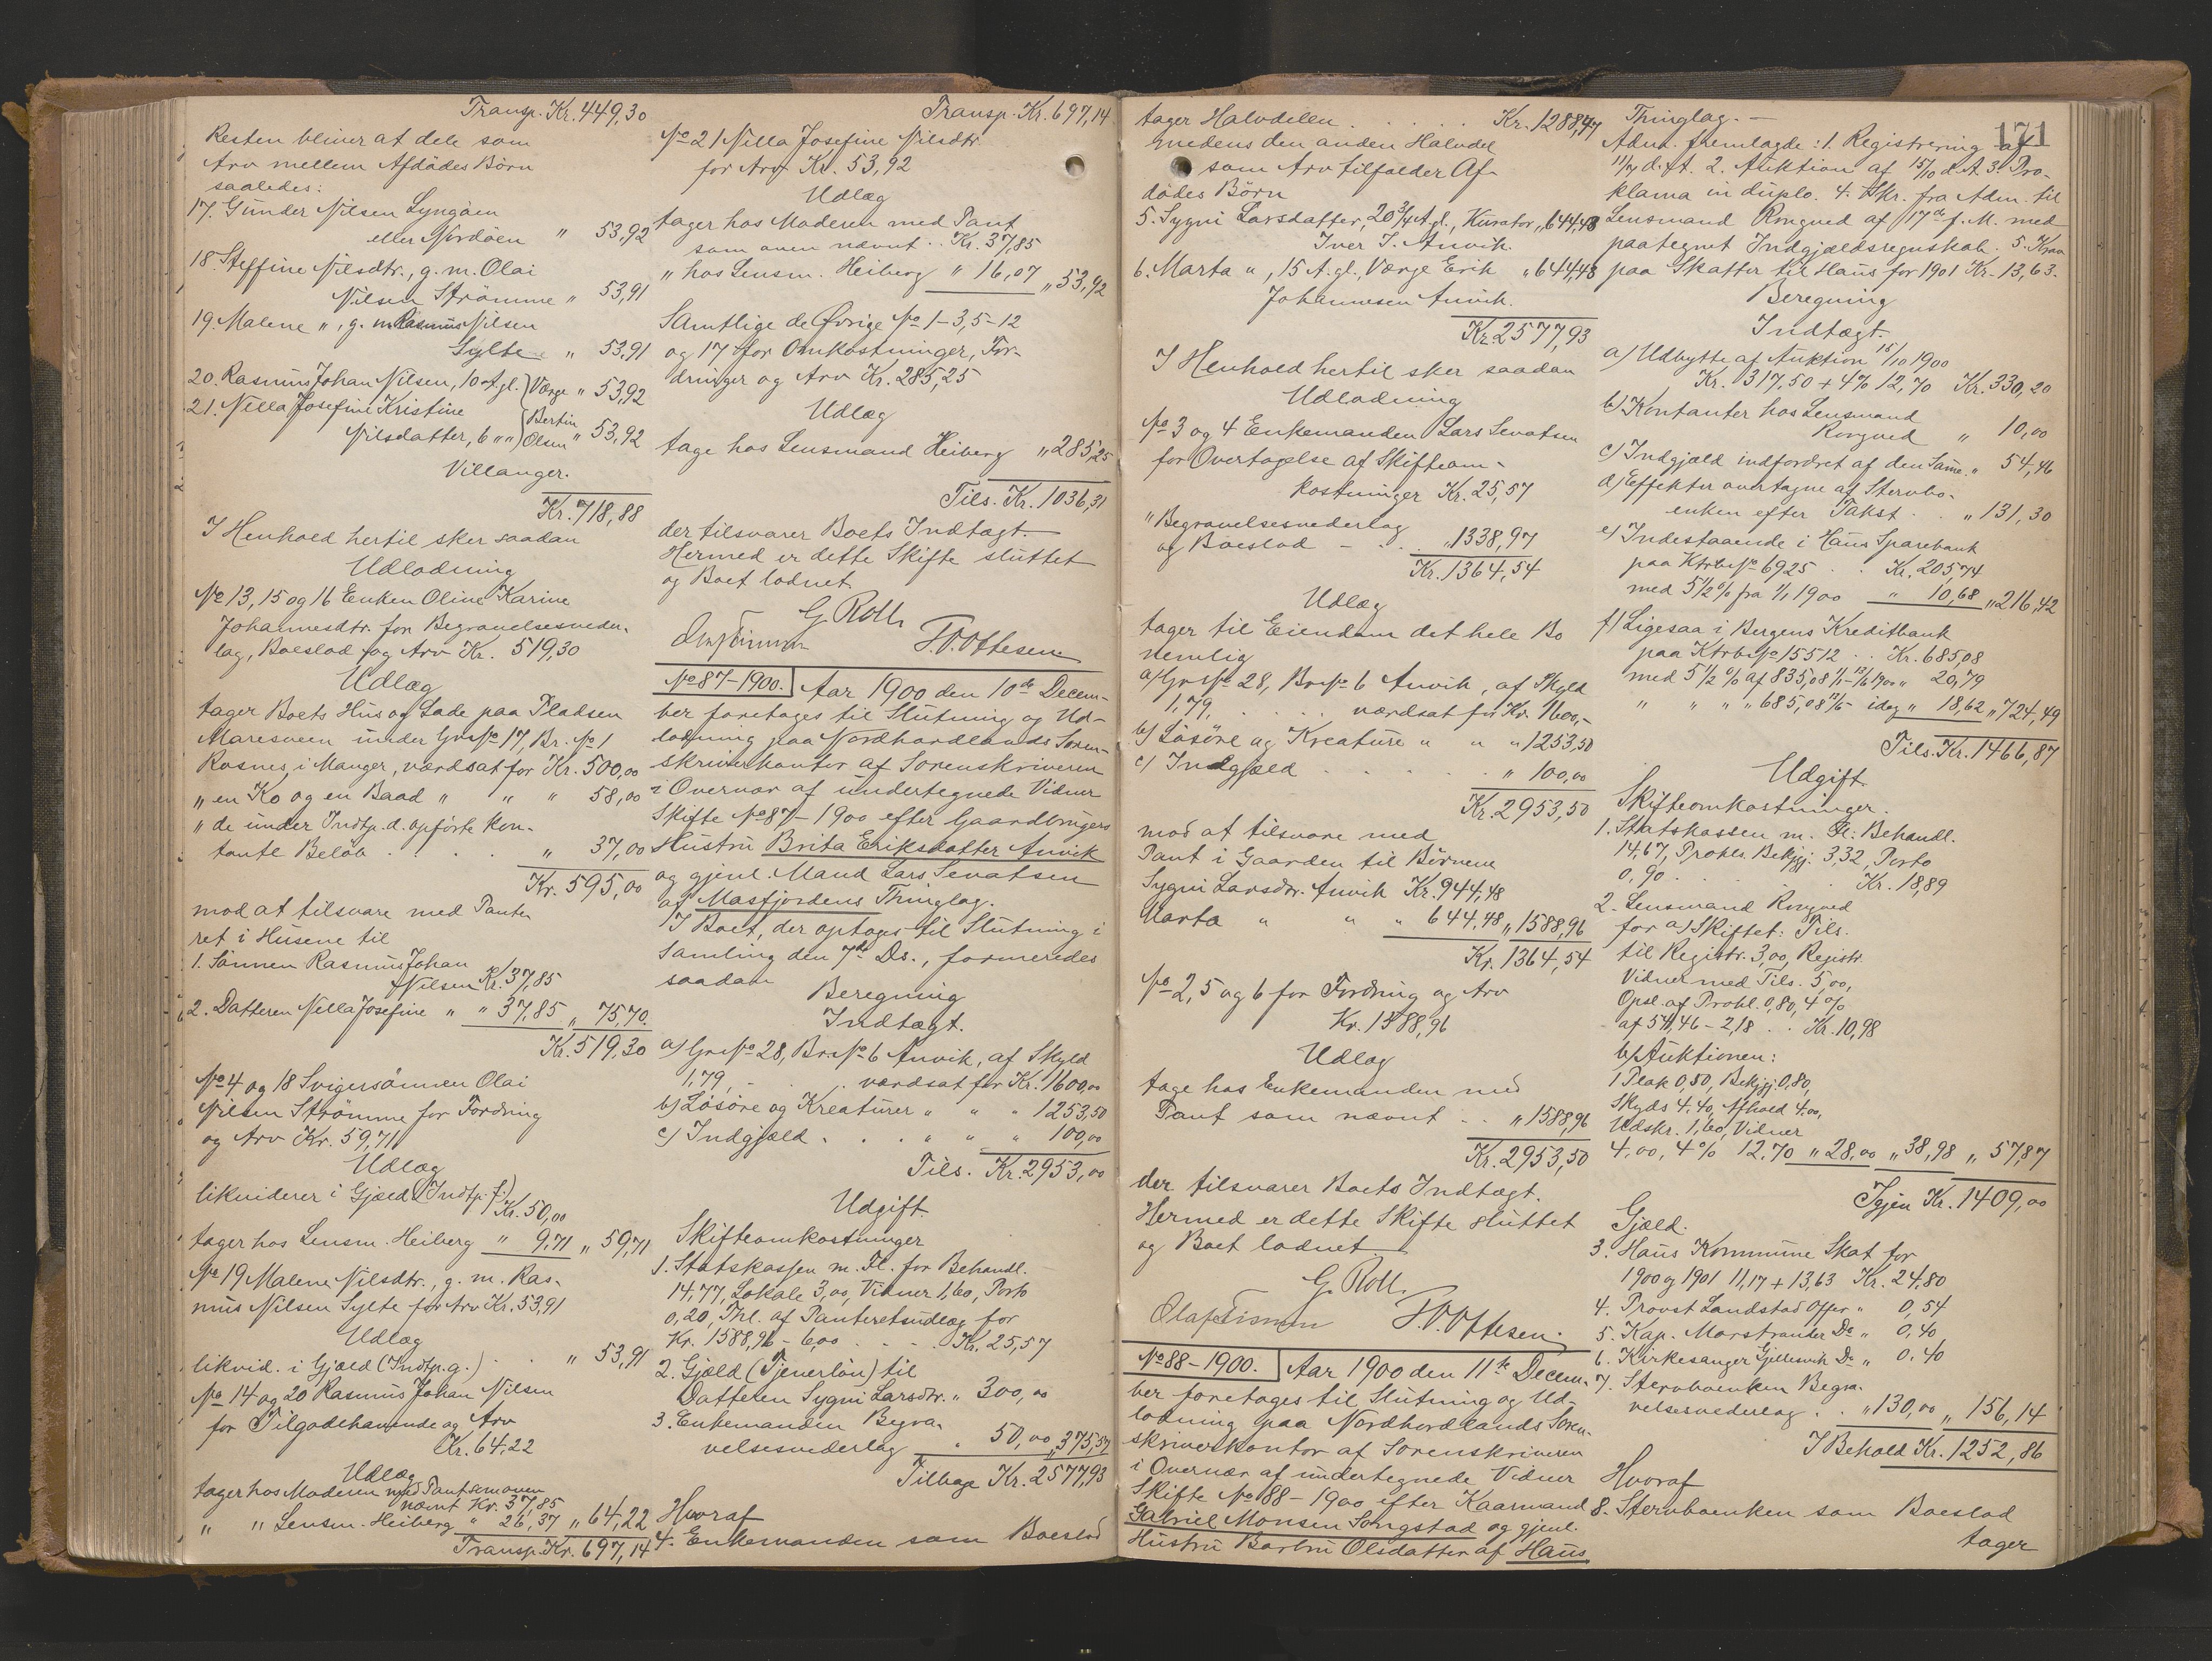 Transp. Kr. 449,30
Resten bliver at dele som
Arv mellem Afdödes Börn
saaledes:
17. Gunder Nilsen Lyngöen
eller Nordöen " 53,92
18. Steffine Nilsdtr., g. m. Olai
Nilsen Strömme " 53,91
19. Malene ", g. m. Rasmus Nilsen
Sylte " 53,91
20. Rasmus Johan Nilsen, 10 A. gl. } Værge " 53,92
21. Nilla Josefine Kristine { Bertin
Nilsdatter, 6 " " } Olsen " 53,92
Villanger.
Kr. 718,88
I Henhold hertil sker saadan
Udlodning
No 13, 15 og 16 Enken Oline Karine
Johannesdtr. for Begravelsesveder-
lag, Boeslod og Arv Kr. 519,30
Udlæg
tager Boets Hus og Lade paa Pladsen
Maresveen under Grs No 17, Br. No 1
Rosnes, i Manger, værdsat for Kr. 500,00
" en Ko og en Baad " " " 58,00
" de under Indtp. d. opförte kon-
tante Belöb . . . . " 37,00
Kr. 595,00
mod at tilsvare med Pante
ret i Husene til
1. Sönnen Rasmus Johan
Nilsen Kr. 37,85
2. Datteren Nilla Josefine " " 37,85 " 75,70.
Kr. 519,30
No 4 og 18 Svigersönnen Olai
Nilsen Strömme for Fordring
og Arv Kr. 59,71
Udlæg
likviderer i Gjæld (Indtp. f.) Kr. 50,00
tager hos Lensm. Heiberg " 9,71 " 59,71
No 19 Malene Nilsdtr., g. m. Ras-
mus Nilsen Sylte for Arv Kr. 53,91
Udlæg
likvid. i Gjæld (Indtp. g.) . . " 53,91
No 14 og 20 Rasmus Johan Nilsen
for Tilgodehavende og Arv
Kr. 64,22
Udlæg
tager hos Moderen med Pant som oven
nævnt Kr. 37,85
" " Lensm. Heiberg " 26,37 " 64,22
Transp. Kr. 697,14
Transp. Kr. 697,14
No 21 Nilla Josefine Nilsdtr.
for Arv Kr. 53,92
Udlæg
tager hos Moderen med Pant
som oven nævnt . . Kr. 37,85
" hos Lensm. Heiberg " 16,07 " 53,92
Samtlige de Øvrige No 1-3, 5-12
og 17 for Omkostninger, For-
dringer og Arv Kr. 285,25
Udlæg
tage hos Lensmand Heiberg " 285,25
Tils. Kr. 1036,31
der tilsvarer Boets Indtægt.
Hermed er dette Skifte sluttet
og Boet lodnet
G. Roll
F. O. Ottesen
No 87-1900. Aar 1900 den 10de Decem-
ber foretoges til Slutning og Ud-
lodning paa Nordhordlands Soren-
skriverkontor af Sorenskriveren
i Overvær af undertegnede Vidner
Skifte No 87-1900 efter Gaardbrugers
Hustru Brita Eriksdatter Anvik
og gjenl. Mand Lars Sevatsen
af Masfjordens Thinglag.
I Boet, der optoges til Slutning i
Samling den 7de Ds., formeredes
saadan
Beregning
Indtægt.
a) Grs No 28, Brs No 6 Anvik, af Skyld
1,79, . . . værdsat for Kr. 1600,00
b) Lösöre og Kreaturer " " " 1253,50
c) Indgjæld . . . " " " 100,00
Tils. Kr. 2953,00
Udgift.
Skifteomkostninger
1. Statskassen m. Fl. for Behandl.
14,77, Lokale 3,00, Vidner 1,60, Porto
0,20, Thl. af Panteretsudlæg for
Kr. 1588,96 - 6,00 . . . Kr. 25,57
2. Gjæld (Tjenerlön) til
Datteren Sygni Larsdtr. " 300,00
3. Enkemanden Begra-
velsesvederlag . 50,00 " 375,57
Tilbage Kr. 2577,93
Hvoraf
4. Enkemanden som Boeslod
171
tager Halvdelen . . . . . Kr. 1288,97
medens den anden Halvdel
som Arv tilfalder Af-
dödes Börn
5. Sygni Larsdatter, 20 3/4 A. gl., Kurator " 644,48
Iver I. Anvik.
6. Marta ", 15 A. gl., Værge Erik " 644,48
Johannesen Anvik.
Kr. 2577,93
I Henhold hertil sker saadan
Udlodning
No 3 og 4 Enkemanden Lars Sevatsen
for Overtagelse af Skifteom-
kostninger Kr. 25,57
" Begravelsesvederlag
og Boeslod - . . " 1338,97
Kr. 1364,54
Udlæg
tager til Eiendom det hele Bo
nemlig
a) Grs No 28, Brs No 6 Anvik, af Skyld
1,79, . . . . værdsat for Kr. 1600,-
b) Lösöre og Kreature " " " 1253,50
c) Indgjæld . . . . . " 100,00
Kr. 2953,50
mod at tilsvare med
Pant i Gaarden til Börnene
Sygni Larsdtr. Anvik Kr. 944,48
Marta " " " 644,48 " 1588,96
Kr. 1364,54
No 2, 5 og 6 for Fordring og Arv
Kr. 1588,96
Udlæg
tage hos Enkemanden med
Pant som nævnt . . " 1588,96
Kr. 2953,50
der tilsvarer Boets Indtægt.
Hermed er dette Skifte sluttet
og Boet lodnet.
G. Roll.
F. O. Ottesen.
No 88-1900. Aar 1900 den 11te Decem-
ber foretoges til Slutning og Ud-
lodning paa Nordhordlands Soren-
skriverkontor af Sorenskriveren
i Overvær af undertegnede Vidner
Skifte No 88-1900 efter Kaarmand
Gabriel Monsen Songstad og gjenl.
Hustru Barbru Olsdatter af Haus
Thinglag. -
Adm. fremlagde: 1. Registrering af
11/7 d. A. 2. Auktion af 15/10 d. A. 3. Pro-
klama in duplo. 4. Skr. fra Adm. til
Lensmand Rongved af 17de f. M. med
paategnet Indgjældsregnskab. 5. Krav
paa Skatter til Haus for 1901 Kr. 13,63.
Beregning
Indtægt.
a) Udbytte af Auktion 15/10 1900
Kr. 317,50 + 4% 12,70 Kr. 330,20
b) Kontanter hos Lensmand
Rongved " 10,00
c) Indgjæld indfordret af den Same. " 54,46
d) Effekter overtagne af Stervbo-
enken efter Takst . . " 131,30
e) Indestaaende i Haus Sparebank
paa Ktrb. No 6925 . . Kr. 205,74
med 5 1/2 % fra 1/1 1900 " 10,68 " 216,42
f) Ligesaa i Bergens Kreditbank
paa Ktrb. No 15512 . . Kr. 685,08
med 5 1/2 % af 835,08 1/1-12/6 1900 " 20,79
" " " " 685,08 12/6 - idag " 18,62 " 724,49
Tils. Kr. 1466,87
Udgift.
Skifteomkostninger.
1. Statskassen m. Fl.: Behandl.
14,67, Prokls. Bekjgj. 3,32, Porto
0,90 . . . . . Kr. 18,89
2. Lensmand Rongved
for a) Skiftet: Tils.
til Registr. 3,00, Registr.
Vidner med Tils. 5,00,
Opsl. af Prokl. 0,80, 4 %
af 54,46 - 2,18 . . Kr. 10,98
b) Auktionen:
1 Plak 0,50, Bekjgj. 0,80,
Skyds 4,40, Afhold 4,00,
Udskr. 1,60, Vidner
4,00, 4% 12,70 " 28,00 " 38,98 " 57,87
Igjen Kr. 1409,00
Gjæld.
3. Haus Kommune Skat for
1900 og 1901 11,17 + 13,63 Kr. 24,80
4. Provst Landstad Offer " 0,54
5. Kap. Morstrander Do " 0,40
6. Kirkesanger Gjellesvik Do " 0,40
7. Stervboenken Begra-
velsesvederlag . . " 130,00 " 156,14
I Behold Kr. 1252,86
Hvoraf
8. Stervboenken som Boeslod
tager